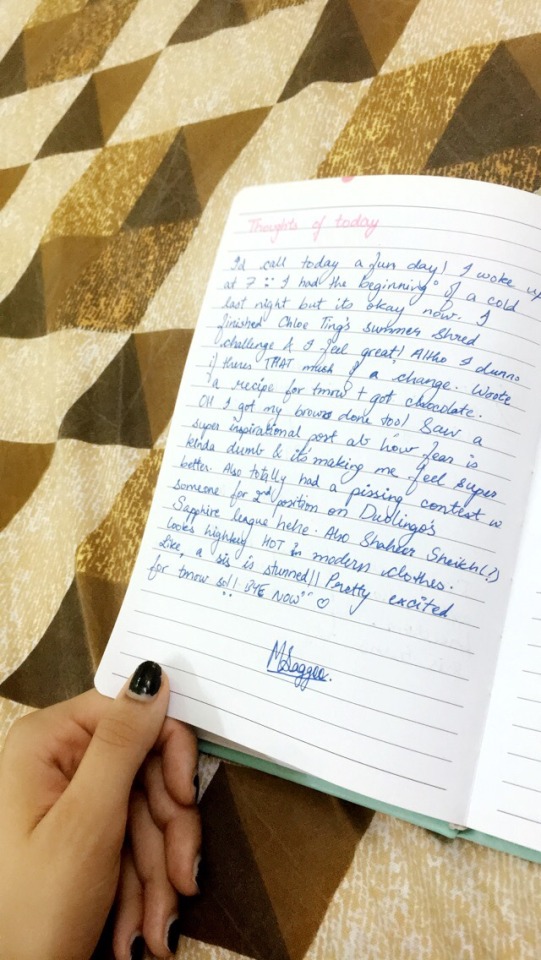 Thoughts of today
I'd call today a fun day! I woke up
at 7 :: I had the beginning of a cold
last night but its okay now. I
finished Chloe Ting's summer shred
challenge & I feel great! Altho I dunno
if theres THAT much of a change. Wrote
a recipe for tmrw + got chocolate.
OH I got my brows done too! Saw a
super inspirational post ab how fear is
kinda dumb & it's making me feel super
better. Also totally had a pissing contest w
someone for 2nd position on Duolingo's
Sapphire league hehe. Also Shaheer Sheikh(!)
looks highkey HOT in modern clothes.
Like, a sis is stunned!! Pretty excited
for tmrw so!! BYE NOW ♡